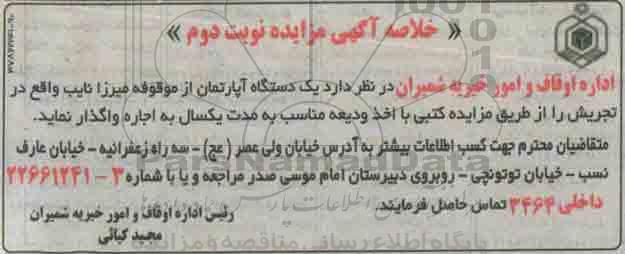 « خلاصه آگهی مزایده نوبت دوم »
اداره اوقاف و امور خیریه شمیران در نظر دارد یک دستگاه آپارتمان از موقوفه میرزا نایب واقع در
تجریش را از طریق مزایده کتبی با اخذ ودیعه مناسب به مدت یکسال به اجاره واگذار نماید.
متقاضیان محترم جهت کسب اطلاعات بیشتر به آدرس خیابان ولی عصر (عج) - سه راه زعفرانیه - خیابان عارف
نسب - خیابان توتونچی - روبروی دبیرستان امام موسی صدر مراجعه و یا با شماره ۳ - ۲۲۶۶۱۲۴۱
داخلی ۳۴۶۴ تماس حاصل فرمایند.
رئیس اداره اوقاف و امور خیریه شمیران
مجید کیائی
ParsNamadData
پایگاه اطلاع رسانی مناقصه و مزایده